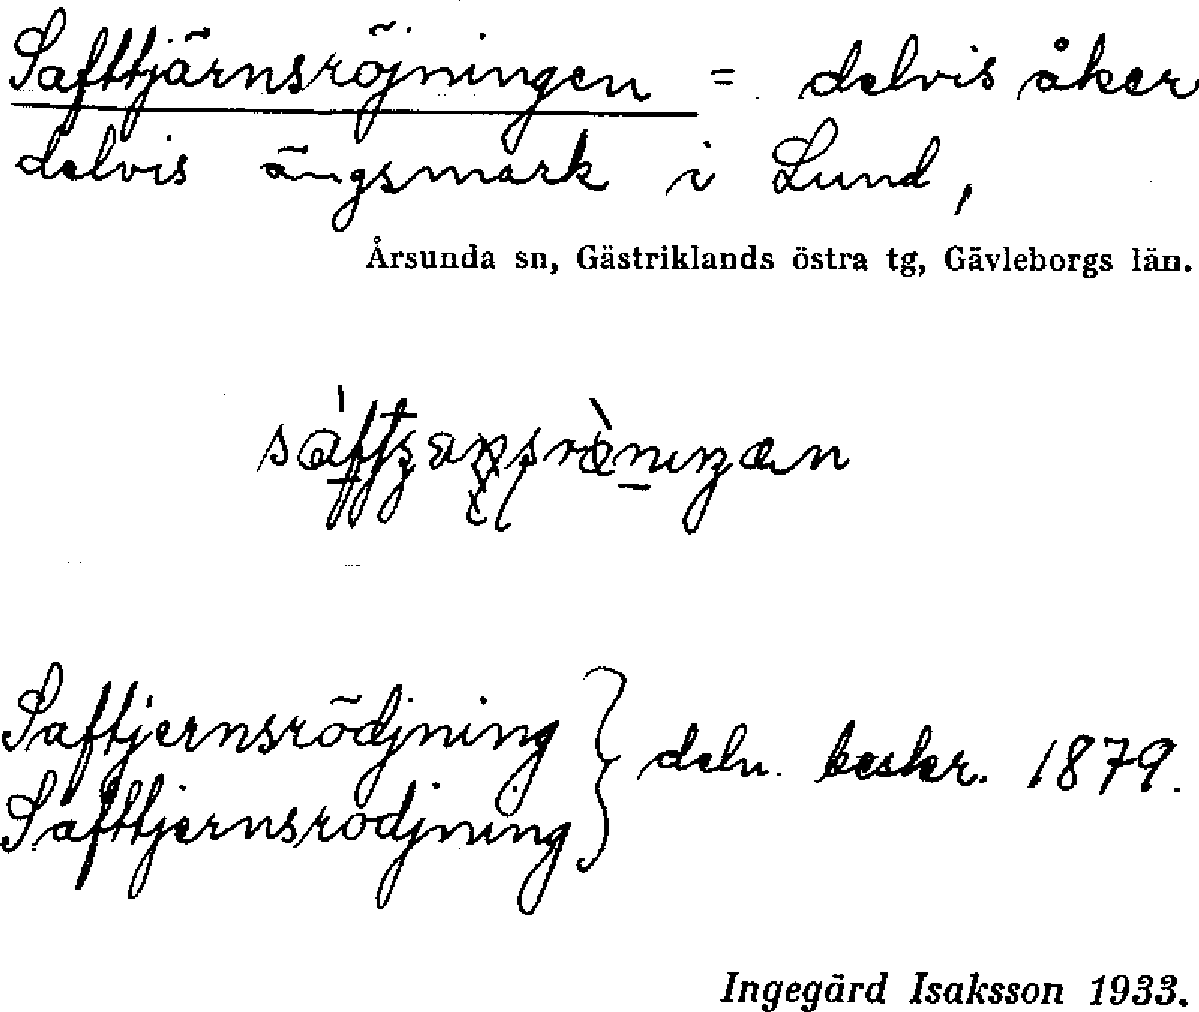 Safttjärnsröjningen = delvis åker
delvis ängsmark i Lund,
Årsunda sn, Gästriklands östra tg, Gävleborgs län.
Saftjernsrödjning
Safttjernsrödjning } deln. beskr. 1879.
Ingegärd Isaksson 1933.